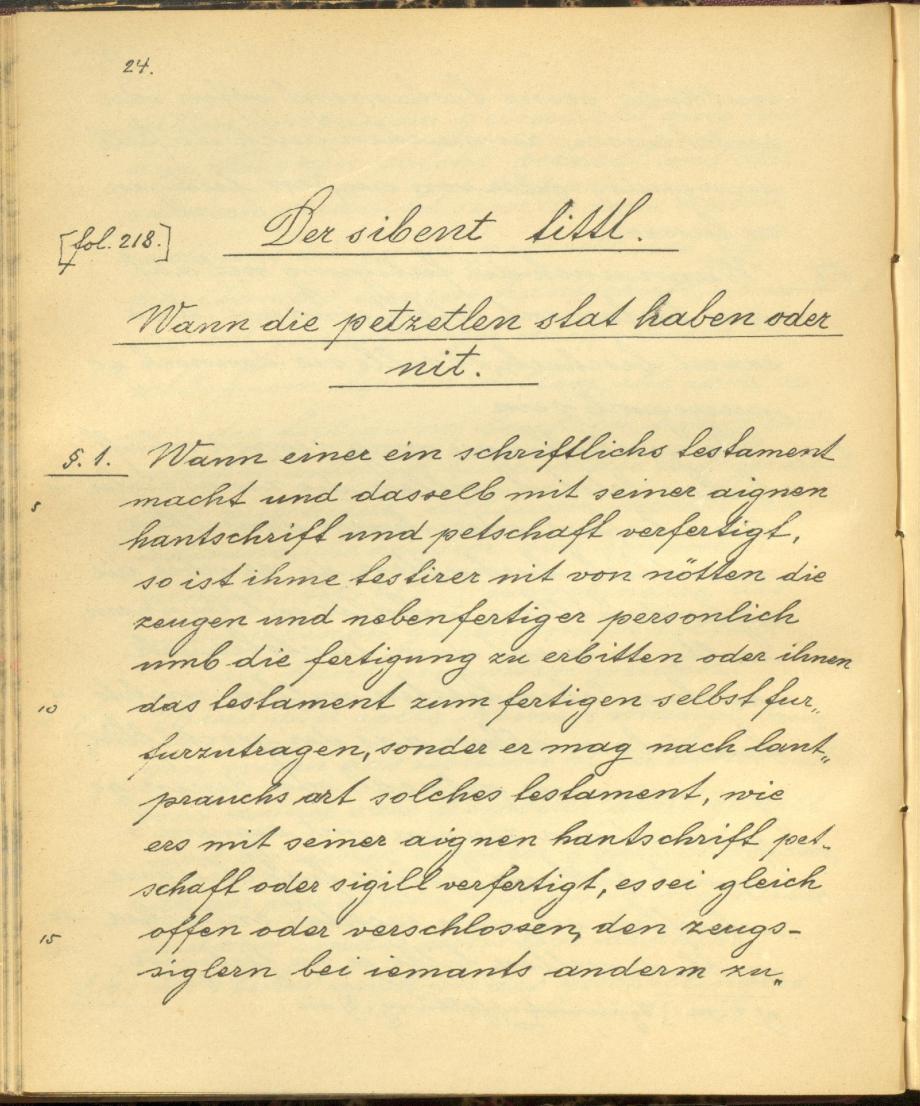 24.
[fol. 218.] Der sibent tittl.
Wann die petzetlen stat haben oder
nit.
§. 1. Wann einer ein schriftlichs testament
5 macht und dasselb mit seiner aignen
hantschrift und petschaft verfertigt,
so ist ihme testirer nit von nötten die
zeugen und nebenfertiger personlich
umb die fertigung zu erbitten oder ihnen
10 das testament zum fertigen selbst fur„
furzutragen, sonder er mag nach lant„
prauchs art solches testament, wie
ers mit seiner aignen hantschrift pet-
schaft oder sigill verfertigt, es sei gleich
15 offen oder verschlossen, den zeugs-
siglern bei iemants anderm zu„